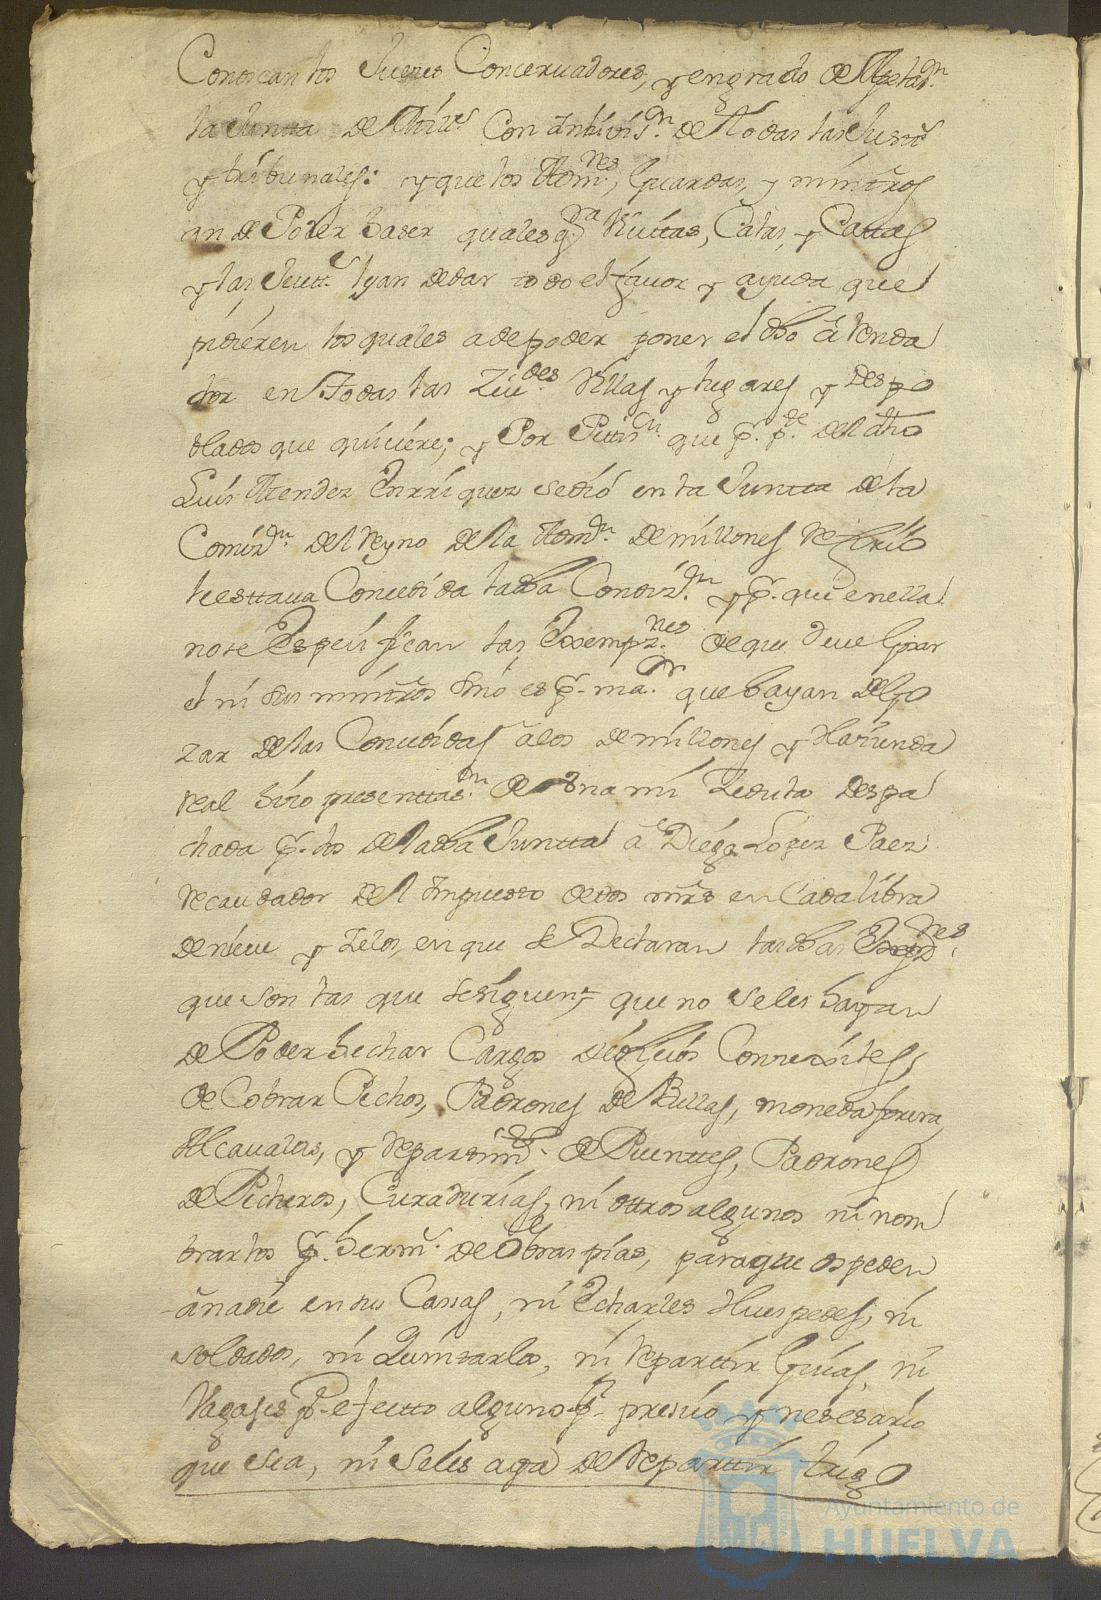 Conoscan los Jueses Conceruadores, y engrado de Apelaz.on
la Juntta de Mill.s Con Inhiuiz.on de todas las Just.s
y tribunales: y que los Adm.res, Guardas, y ministros
an de Poder haser qualesq.ra Vissitas, Catas, y Cattas
y las Justt.s lean de dar todo el fauor y ayuda que
pidieren los quales a de poder poner el dho arrenda
dor en todas las Ziu.des Villas y lugares y Despo
blados que quisiere; y Por Petiz.n que p.r p.te del dho
Luis Mendez Enrriquez sedio en la Juntta de la
Comiz.on del Reyno de la Adm.on de millones Refirio
le esttaua Concedida la dha Condiz.on y p.r que en ella
no se Espesifican las Exsempz.nes de que deue Gosar
el ni sus ministros sino es p.r ma.or que bayan de Go
zar de las Consedidas a los de millones y Hazienda
Real hizo presenttaz.on de vna mi Zedula despa
chada p.r los de la dha Juntta a Diego Lopez Paez
Recaudador del Impuesto de dos mrs en Cada libra
de nieue y Yelos, en que se Declaran las dhas Exempz.nes
que son las que se siguen, que no se les hayan
de Poder hechar Cargos de ofisios Consexiles,
de Cobrar Pechos, Padrones de Bullas, moneda forera,
Alcaualas, y repartim.tos de Puenttes, Padrones
de Pecheros, Curadurias, ni ottros algunos ni nom
brarlos p.r Herm.s de Obras pias, para que ospeden
a nadie en sus Cassas, ni Echarles Huespedes, ni
soldados, ni Quintarlos, ni Reparttir Guias, ni
Vagajes p.a efectto alguno p.r presiso y nesesario
que sea, ni seles aga de Reparttir trigo
Ayuntamiento de
HUELVA